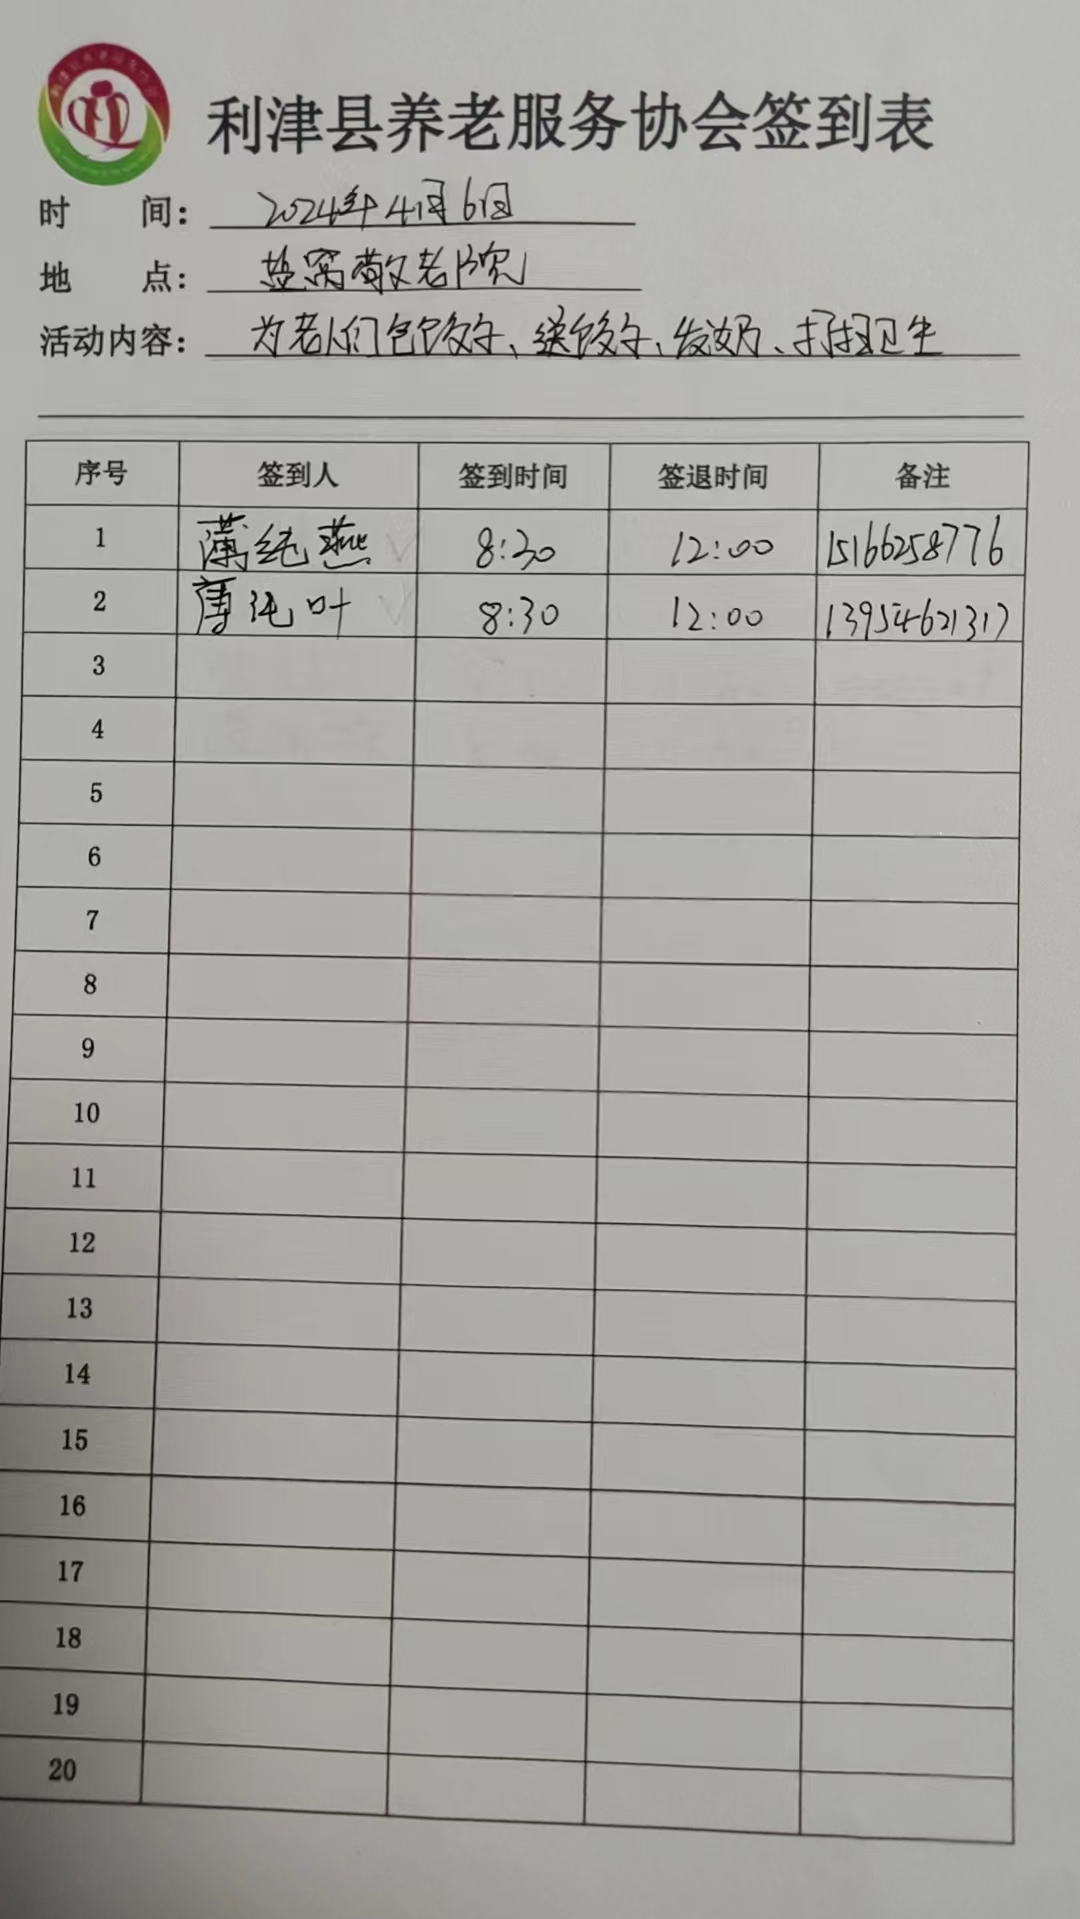 利津县养老服务协会签到表
时 间：2024年4月6日
地 点：盐窝敬老院
活动内容：为老人们包饺子、送饺子、发奶、打扫卫生
序号 签到人 签到时间 签退时间 备注
1 薄纯燕 8:30 12:00 15166258776
2 薄纯叶 8:30 12:00 13954621317
3
4
5
6
7
8
9
10
11
12
13
14
15
16
17
18
19
20